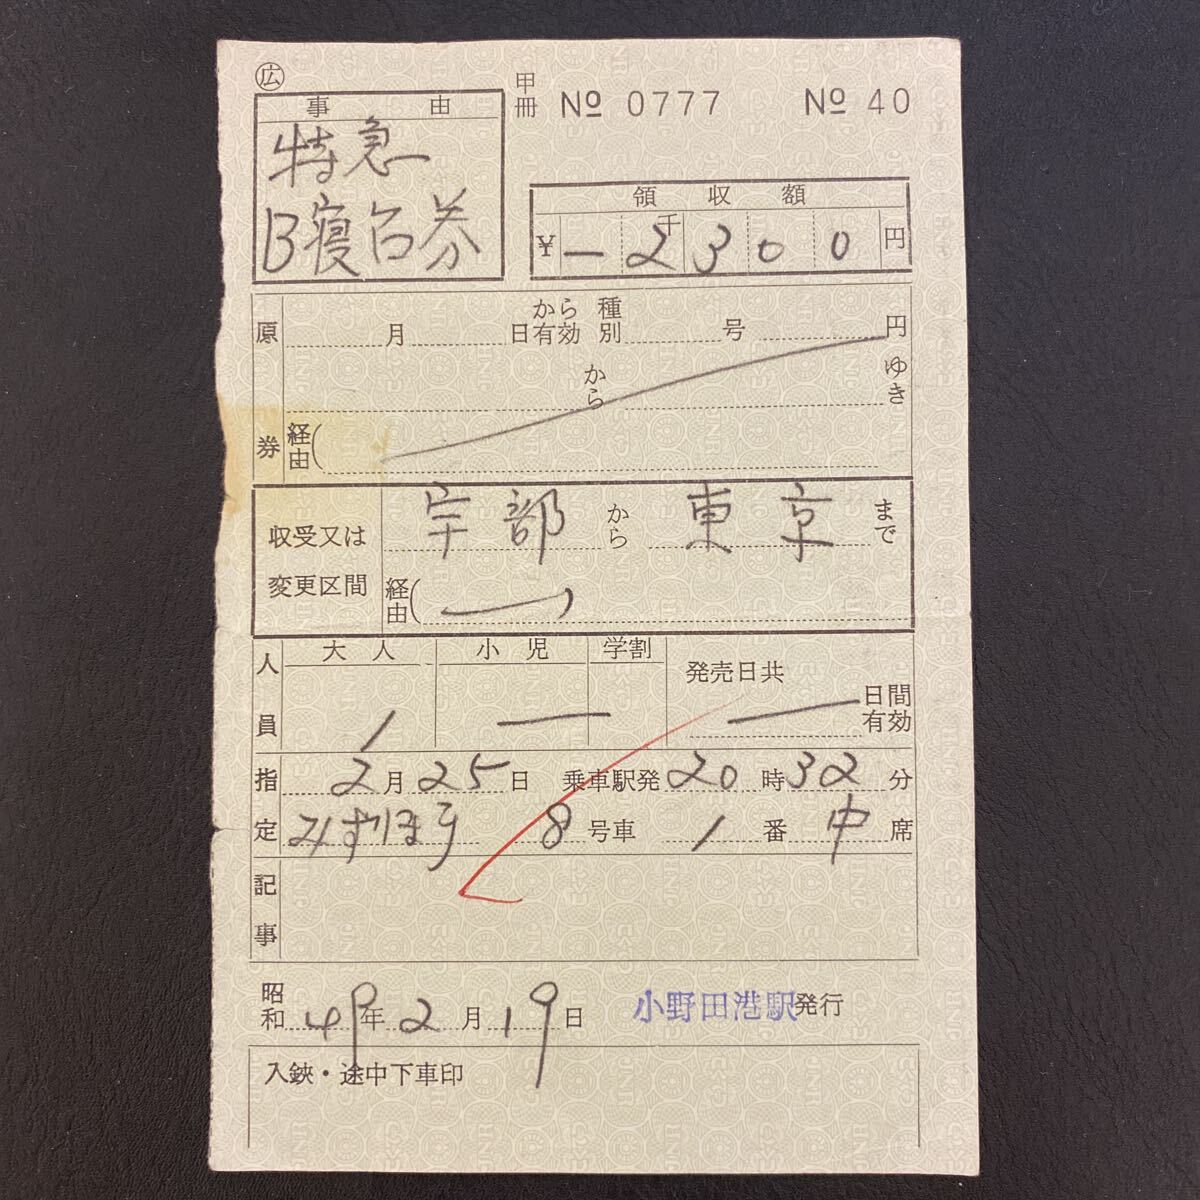 広
甲冊 № 0777 № 40
事由
特急
B寝台券
領収額
¥ー2千300円
原券
月 日から有効 種別 号 円
から ゆき
経由(
収受又は変更区間
宇部から 東京まで
経由( ー)
人員
大人 小児 学割
1 ー
発売日共 ー 日間有効
指定
2月25日 乗車駅発20時32分
みずほ号 8号車 1番 中席
記事
昭和49年2月19日 小野田港駅発行
入鋏・途中下車印